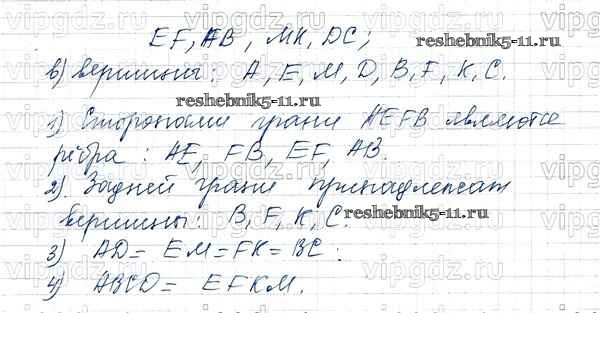 EF, AB, MK, DC;
reshebnik5-11.ru
в) вершины: A, E, M, D, B, F, K, C.
reshebnik5-11.ru
1) Сторонами грани AEFB являются
рёбра: AE, FB, EF, AB.
2) Задней грани принадлежат
вершины: B, F, K, C.
reshebnik5-11.ru
3) AD = EM = FK = BC:
4) ABCD = EFKM.
vipgdz.ru